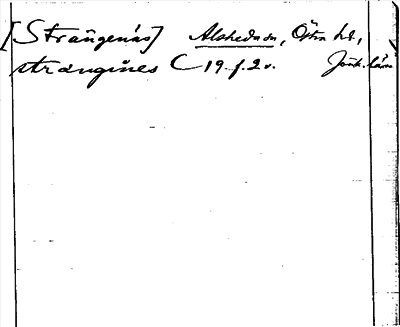 [Strängenäs] Alsheda sn, Östra hd,
strængines C 19 f. 2 v. Jönk. län